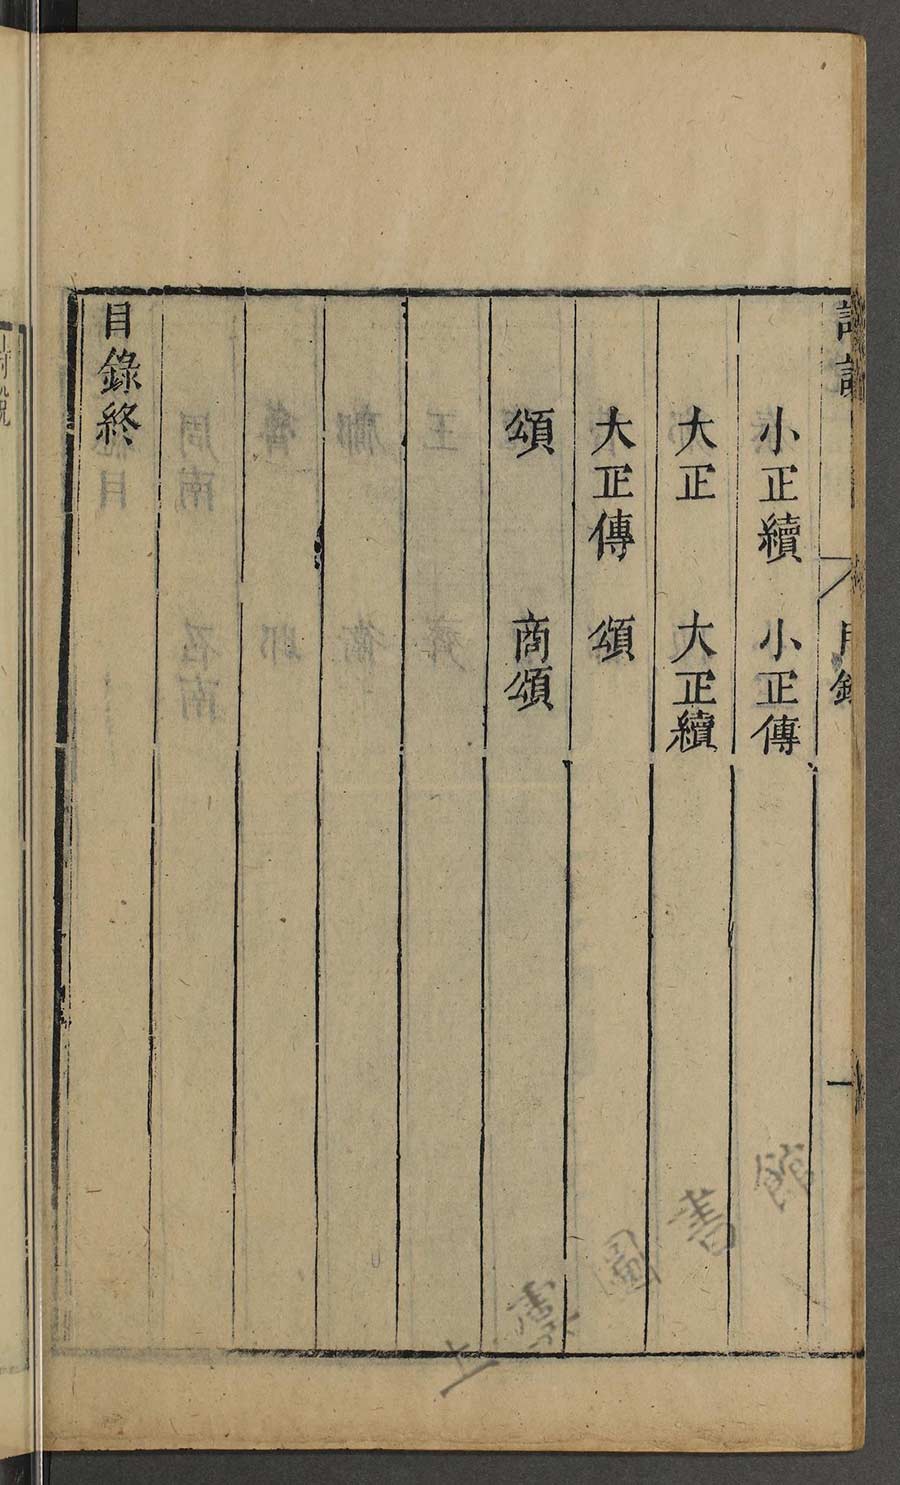 小正續　小正傳
大正　大正續
大正傳　頌
頌　商頌
目錄終
圖書館